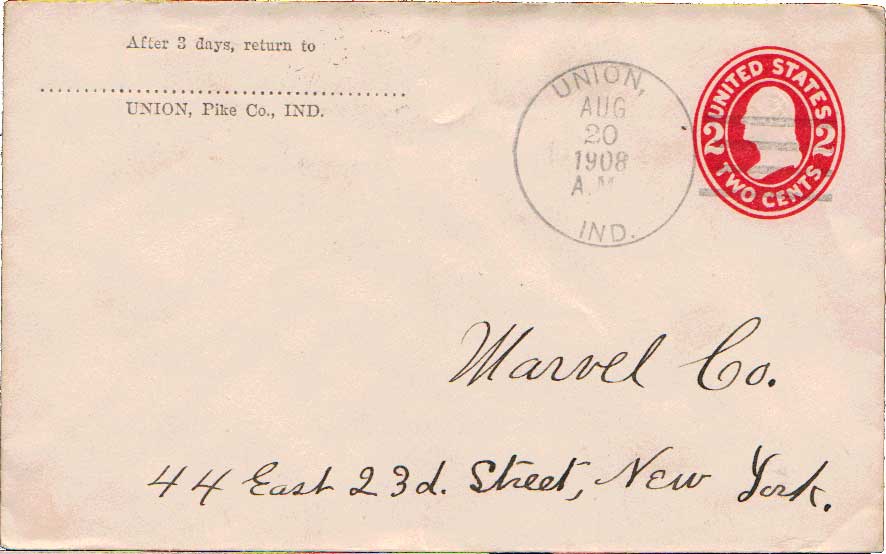 After 3 days, return to
UNION, Pike Co., IND.
UNION,
AUG
20
1908
A.M.
IND.
UNITED STATES
2 2
TWO CENTS
Marvel Co.
44 East 23d. Street, New York.